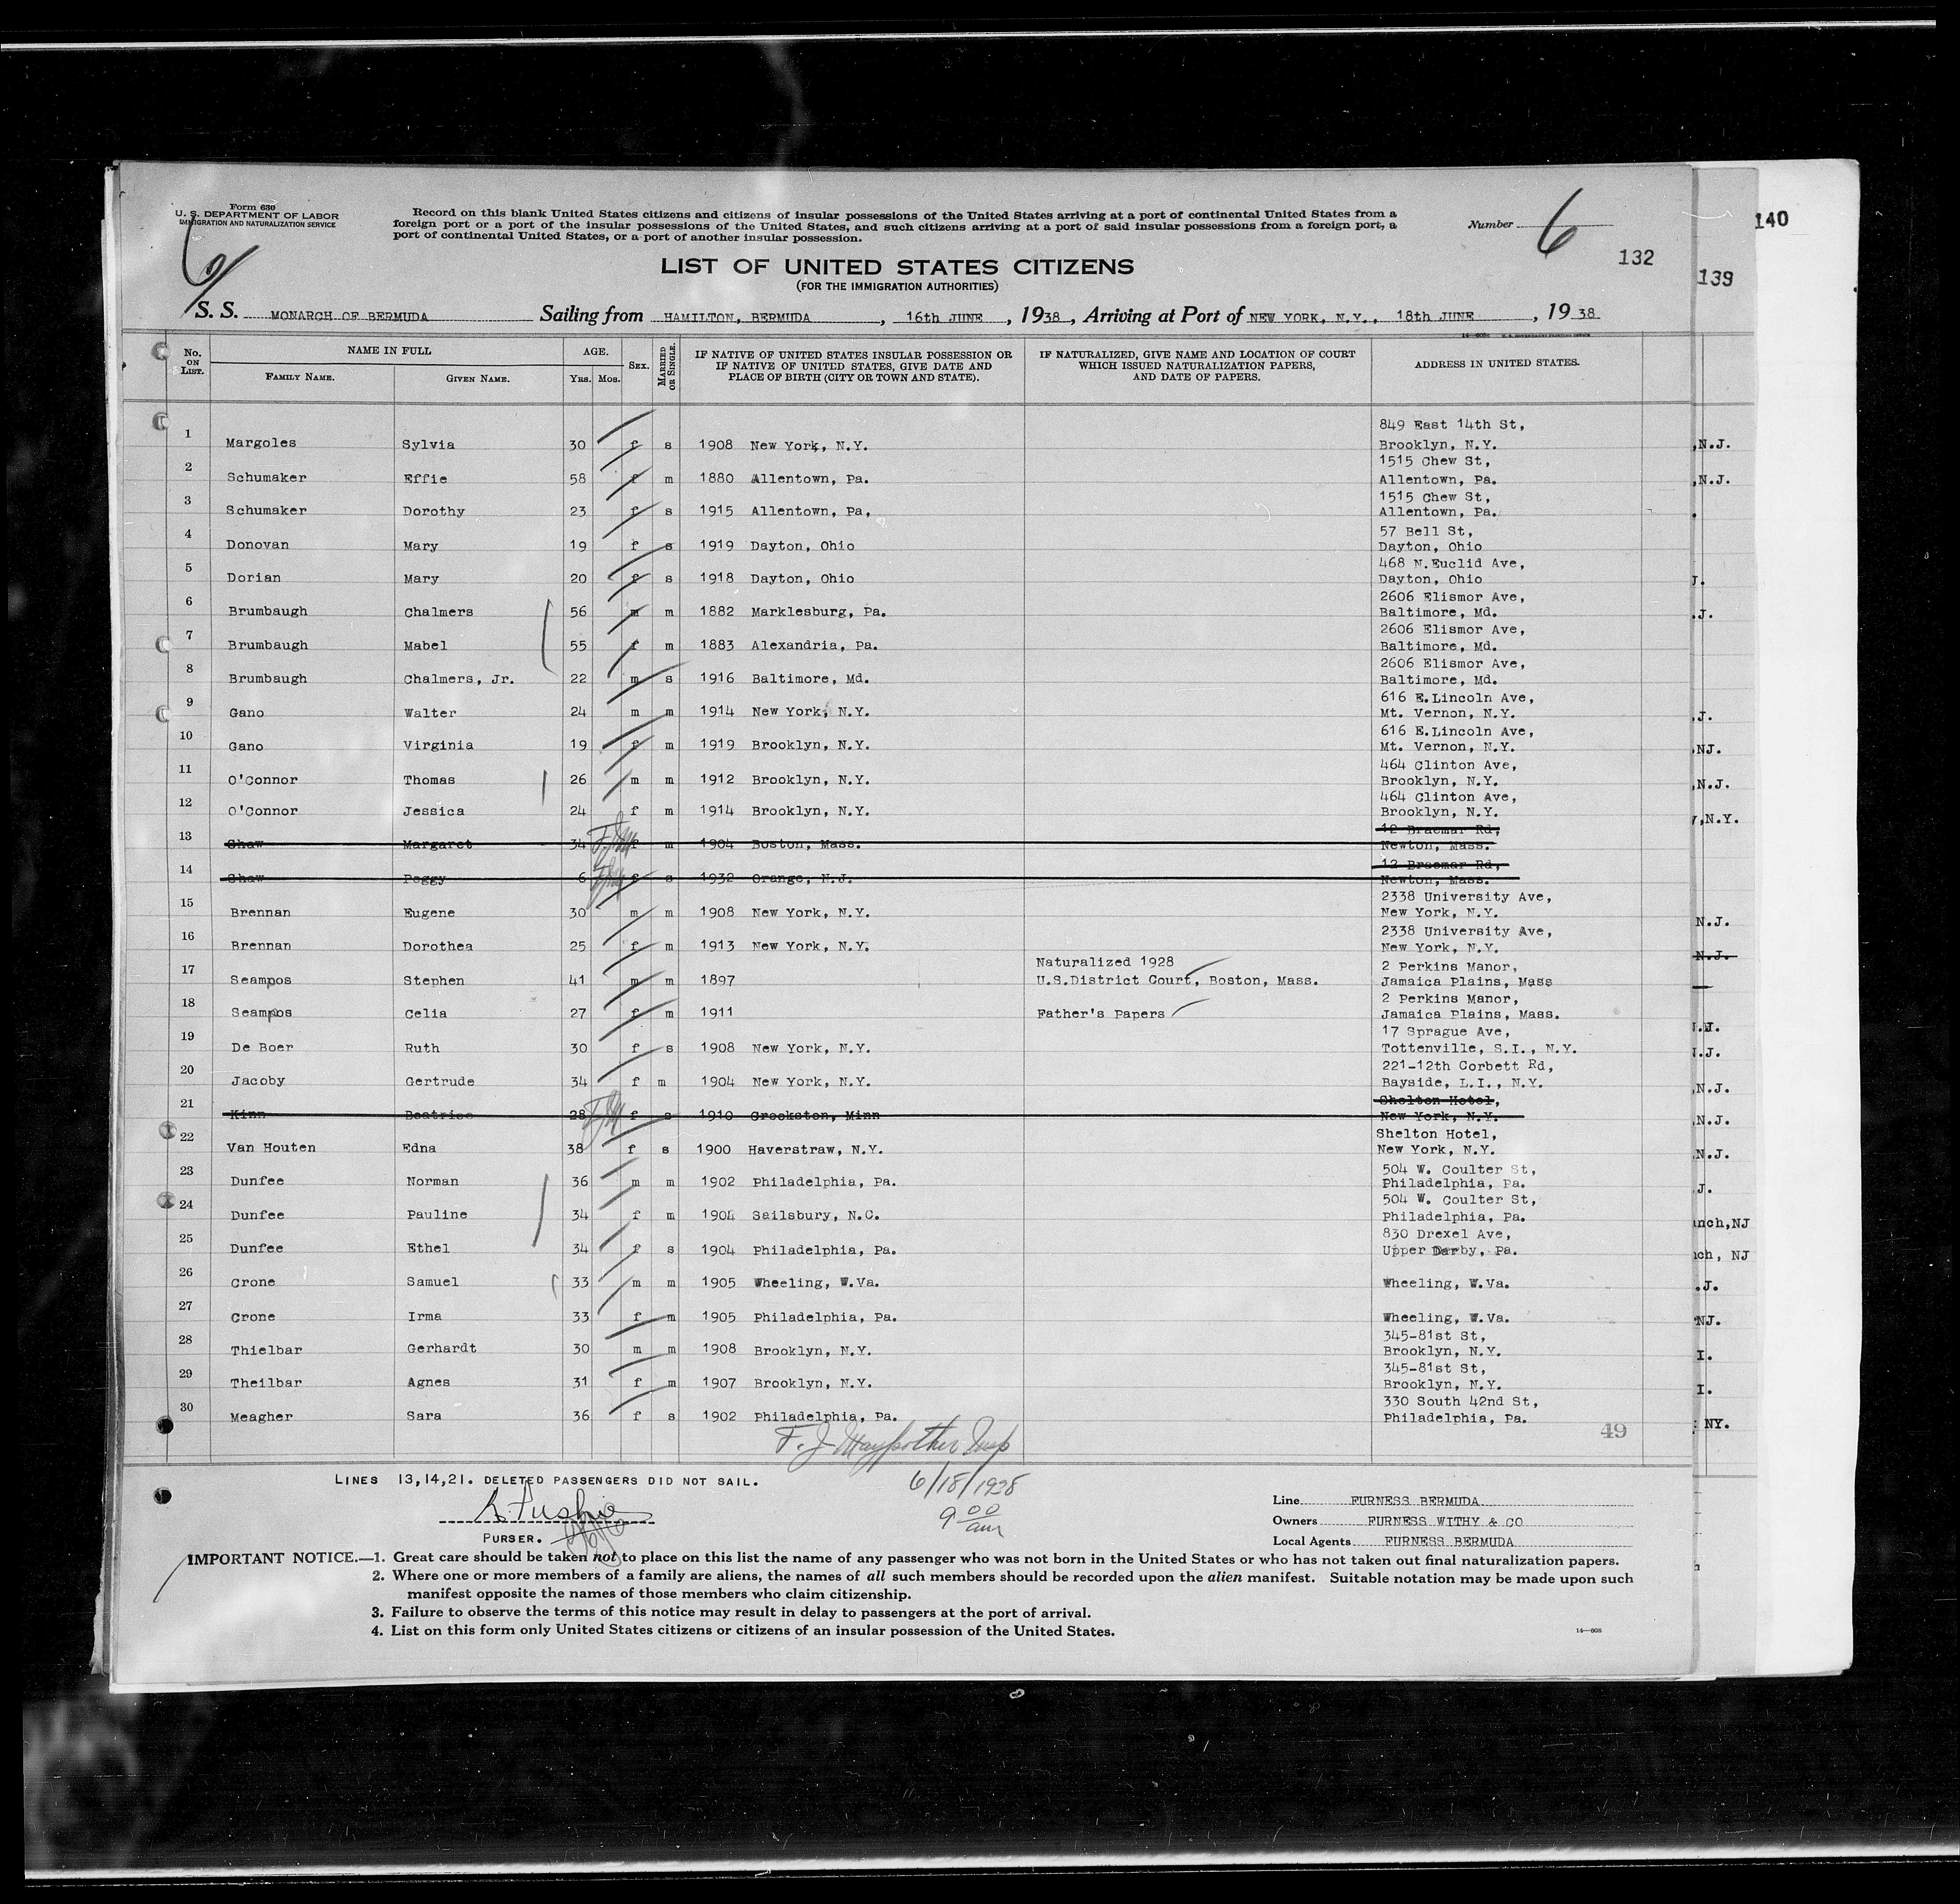 Form 630
U. S. DEPARTMENT OF LABOR
IMMIGRATION AND NATURALIZATION SERVICE
Record on this blank United States citizens and citizens of insular possessions of the United States arriving at a port of continental United States from a
foreign port or a port of the insular possessions of the United States, and such citizens arriving at a port of said insular possessions from a foreign port, a
port of continental United States, or a port of another insular possession.
Number 6
132
140
139
LIST OF UNITED STATES CITIZENS
(FOR THE IMMIGRATION AUTHORITIES)
S. S. MONARCH OF BERMUDA Sailing from HAMILTON, BERMUDA, 16th JUNE, 1938, Arriving at Port of NEW YORK, N.Y., 18th JUNE, 1938
No. ON LIST. NAME IN FULL AGE. SEX. MARRIED OR SINGLE. IF NATIVE OF UNITED STATES INSULAR POSSESSION OR IF NATIVE OF UNITED STATES, GIVE DATE AND PLACE OF BIRTH (CITY OR TOWN AND STATE). IF NATURALIZED, GIVE NAME AND LOCATION OF COURT WHICH ISSUED NATURALIZATION PAPERS, AND DATE OF PAPERS. ADDRESS IN UNITED STATES.
FAMILY NAME. GIVEN NAME. YRS. MOS.
1 Margoles Sylvia 30 f s 1908 New York, N.Y. 849 East 14th St, Brooklyn, N.Y.
2 Schumaker Effie 58 f m 1880 Allentown, Pa. 1515 Chew St, Allentown, Pa.
3 Schumaker Dorothy 23 f s 1915 Allentown, Pa, 1515 Chew St, Allentown, Pa.
4 Donovan Mary 19 f s 1919 Dayton, Ohio 57 Bell St, Dayton, Ohio
5 Dorian Mary 20 f s 1918 Dayton, Ohio 468 N.Euclid Ave, Dayton, Ohio
6 Brumbaugh Chalmers 56 m m 1882 Marklesburg, Pa. 2606 Elismor Ave, Baltimore, Md.
7 Brumbaugh Mabel 55 f m 1883 Alexandria, Pa. 2606 Elismor Ave, Baltimore, Md.
8 Brumbaugh Chalmers, Jr. 22 m s 1916 Baltimore, Md. 2606 Elismor Ave, Baltimore, Md.
9 Gano Walter 24 m m 1914 New York, N.Y. 616 E.Lincoln Ave, Mt. Vernon, N.Y.
10 Gano Virginia 19 f m 1919 Brooklyn, N.Y. 616 E.Lincoln Ave, Mt. Vernon, N.Y.
11 O'Connor Thomas 26 m m 1912 Brooklyn, N.Y. 464 Clinton Ave, Brooklyn, N.Y.
12 O'Connor Jessica 24 f m 1914 Brooklyn, N.Y. 464 Clinton Ave, Brooklyn, N.Y.
13 Shaw Margaret 34 f m 1904 Boston, Mass. 12 Braemar Rd, Newton, Mass.
14 Shaw Peggy 6 f s 1932 Orange, N.J. 12 Braemar Rd, Newton, Mass.
15 Brennan Eugene 30 m m 1908 New York, N.Y. 2338 University Ave, New York, N.Y.
16 Brennan Dorothea 25 f m 1913 New York, N.Y. 2338 University Ave, New York, N.Y.
17 Seampos Stephen 41 m m 1897 Naturalized 1928 U.S.District Court, Boston, Mass. 2 Perkins Manor, Jamaica Plains, Mass
18 Seampos Celia 27 f m 1911 Father's Papers 2 Perkins Manor, Jamaica Plains, Mass.
19 De Boer Ruth 30 f s 1908 New York, N.Y. 17 Sprague Ave, Tottenville, S.I., N.Y.
20 Jacoby Gertrude 34 f m 1904 New York, N.Y. 221-12th Corbett Rd, Bayside, L.I., N.Y.
21 Kinn Beatrice 28 f s 1910 Crookston, Minn Shelton Hotel, New York, N.Y.
22 Van Houten Edna 38 f s 1900 Haverstraw, N.Y. Shelton Hotel, New York, N.Y.
23 Dunfee Norman 36 m m 1902 Philadelphia, Pa. 504 W. Coulter St, Philadelphia, Pa.
24 Dunfee Pauline 34 f m 1904 Sailsbury, N.C. 504 W. Coulter St, Philadelphia, Pa.
25 Dunfee Ethel 34 f s 1904 Philadelphia, Pa. 830 Drexel Ave, Upper Darby, Pa.
26 Crone Samuel 33 m m 1905 Wheeling, W.Va. Wheeling, W.Va.
27 Crone Irma 33 f m 1905 Philadelphia, Pa. Wheeling, W.Va.
28 Thielbar Gerhardt 30 m m 1908 Brooklyn, N.Y. 345-81st St, Brooklyn, N.Y.
29 Theilbar Agnes 31 f m 1907 Brooklyn, N.Y. 345-81st St, Brooklyn, N.Y.
30 Meagher Sara 36 f s 1902 Philadelphia, Pa. 330 South 42nd St, Philadelphia, Pa.
49
LINES 13,14,21. DELETED PASSENGERS DID NOT SAIL.
6/18/1938
9 00 am
PURSER.
Line FURNESS BERMUDA
Owners FURNESS WITHY & CO
Local Agents FURNESS BERMUDA
IMPORTANT NOTICE.—1. Great care should be taken not to place on this list the name of any passenger who was not born in the United States or who has not taken out final naturalization papers.
2. Where one or more members of a family are aliens, the names of all such members should be recorded upon the alien manifest. Suitable notation may be made upon such
manifest opposite the names of those members who claim citizenship.
3. Failure to observe the terms of this notice may result in delay to passengers at the port of arrival.
4. List on this form only United States citizens or citizens of an insular possession of the United States.
14—608